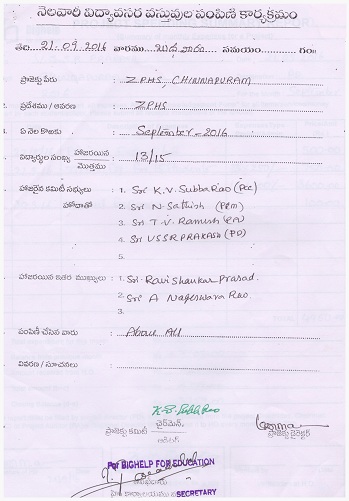 నెలవారీ విద్యావసర వస్తువుల పంపిణీ కార్యక్రమం
తేది: 21.09.2016 వారము బుధవారం సమయం గం॥
ప్రాజెక్టు పేరు : ZPHS, CHINNAPURAM
2. ప్రదేశము / ఆవరణ : ZPHS
3. ఏ నెల కొరకు : September-2016
విద్యార్థుల సంఖ్య హాజరయిన / మొత్తము : 13/15
హాజరైన కమిటీ సభ్యులు : 1. Sri K.V. Subba Rao (PCC)
హోదాతో 2. Sri N. Sathish (PRM)
3. Sri T.V. Ramesh (PA)
4. Sri VSSR PRAKASH (PD)
5.
హాజరయిన ఇతర ముఖ్యులు : 1. Sri Ravi Shankar Prasad.
2. Sri A Nageswara Rao.
3.
పంపిణీ చేసిన వారు : Above All
వివరణ / సూచనలు :
ప్రాజెక్టు కమిటీ ఛైర్‌మెన్
ప్రాజెక్టు డైరెక్టర్
For BIGHELP FOR EDUCATION
SECRETARY